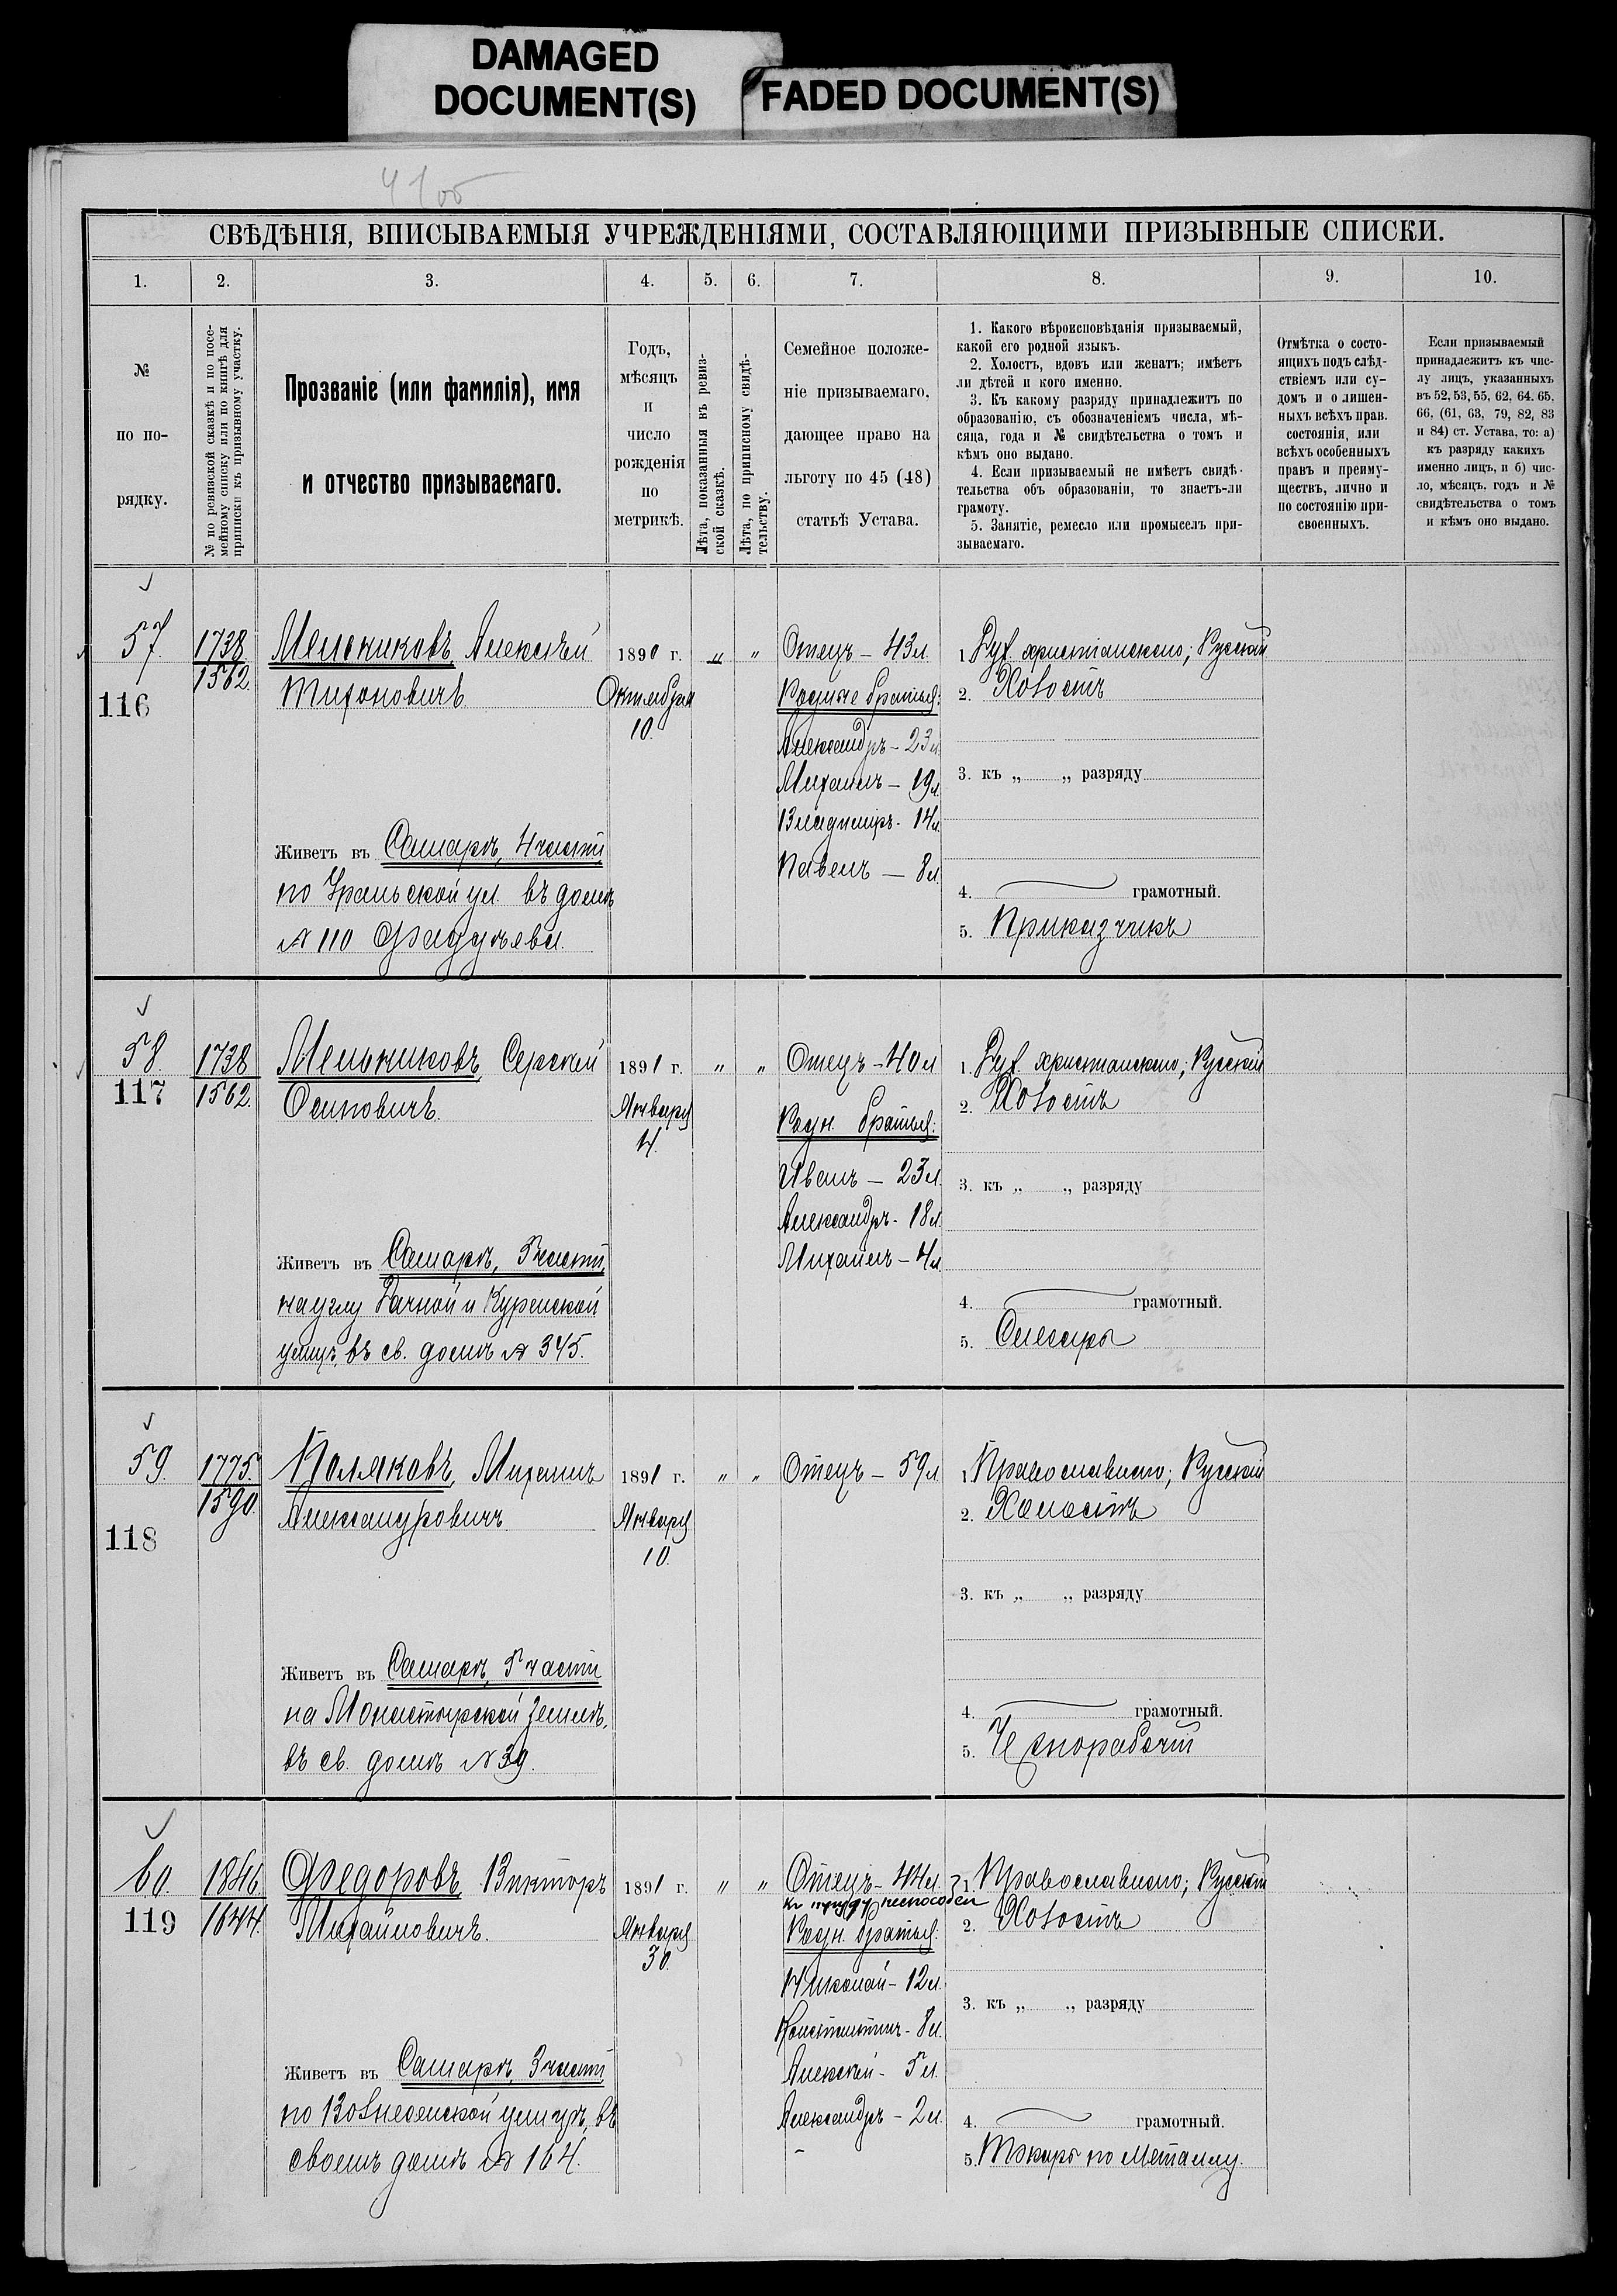 DAMAGED
DOCUMENT(S)
FADED DOCUMENT(S)
41об
СВѢДѢНІЯ, ВПИСЫВАЕМЫЯ УЧРЕЖДЕНІЯМИ, СОСТАВЛЯЮЩИМИ ПРИЗЫВНЫЕ СПИСКИ.
1. 2. 3. 4. 5. 6. 7. 8. 9. 10.
№
по по-
рядку.
№ по ревизской сказкѣ и по посе-
мейному списку или по книгѣ для
приписки къ призывному участку.
Прозваніе (или фамилія), имя
и отчество призываемаго.
Годъ,
мѣсяцъ
и
число
рожденія
по
метрикѣ.
Лѣта, показанныя въ ревиз-
ской сказкѣ.
Лѣта, по приписному свидѣ-
тельству.
Семейное положе-
ніе призываемаго,
дающее право на
льготу по 45 (48)
статьѣ Устава.
1. Какого вѣроисповѣданія призываемый,
какой его родной языкъ.
2. Холостъ, вдовъ или женатъ; имѣетъ
ли дѣтей и кого именно.
3. Къ какому разряду принадлежитъ по
образованію, съ обозначеніемъ числа, мѣ-
сяца, года и № свидѣтельства о томъ и
кѣмъ оно выдано.
4. Если призываемый не имѣетъ свидѣ-
тельства объ образованіи, то знаетъ-ли
грамоту.
5. Занятіе, ремесло или промыселъ при-
зываемаго.
Отмѣтка о состо-
ящихъ подъ слѣд-
ствіемъ или су-
домъ и о лишен-
ныхъ всѣхъ прав.
состоянія, или
всѣхъ особенныхъ
правъ и преиму-
ществъ, лично и
по состоянію при-
своенныхъ.
Если призываемый
принадлежитъ къ чис-
лу лицъ, указанныхъ
въ 52, 53, 55, 62, 64. 65.
66, (61, 63, 79, 82, 83
и 84) ст. Устава, то: а)
къ разряду какихъ
именно лицъ, и б) чис-
ло, мѣсяцъ, годъ и №
свидѣтельства о томъ
и кѣмъ оно выдано.
57.
116
1738
1562.
Мельниковъ Алексѣй
Тихоновичъ
Живетъ въ Самарѣ, 4 части,
по Уральской ул. въ домѣ
№ 110 Фаддѣева.
1890 г.
Октября
10.
„ „
Отецъ – 43 л.
Родные братья:
Александръ – 23 л.
Михаилъ – 19 л.
Владимиръ – 14 л.
Павелъ – 8 л.
1. Дух. христіанскаго; Русскій
2. Холостъ
3. къ „ „ разряду
4. грамотный.
5. Приказчикъ
58.
117
1738
1562.
Мельниковъ, Сергѣй
Осиповичъ.
Живетъ въ Самарѣ, 5 части,
на углу Дачной и Куринской
улицъ, въ св. домѣ № 345.
1891 г.
Января
4.
„ „
Отецъ – 40 л
Родн. братья:
Иванъ – 23 л.
Александръ – 18 л.
Михаилъ – 4 л.
1. Дух. христіанскаго; Русскій
2. Холостъ
3. къ „ „ разряду
4. грамотный.
5. Слесарь
59.
118
1775.
1590.
Поляковъ, Михаилъ
Александровичъ
Живетъ въ Самарѣ, 5 части
на Монастырской землѣ,
въ св. домѣ № 39.
1891 г.
Января
10.
„ „
Отецъ – 59 л
1. Православнаго; Русскій
2. Холостъ
3. къ „ „ разряду
4. грамотный.
5. Чернорабочій
60.
119
1846
1644.
Федоровъ, Викторъ
Михайловичъ.
Живетъ въ Самарѣ, 3 части
по Вознесенской улицѣ, въ
своемъ домѣ № 164.
1891 г.
Января
30.
„ „
Отецъ – 44 л.
къ труду неспособен
Родн. братья:
Николай – 12 л.
Константинъ – 8 л.
Алексѣй – 5 л.
Александръ – 2 л.
1. Православнаго; Русскій
2. Холостъ
3. къ „ „ разряду
4. грамотный.
5. Токарь по металлу.